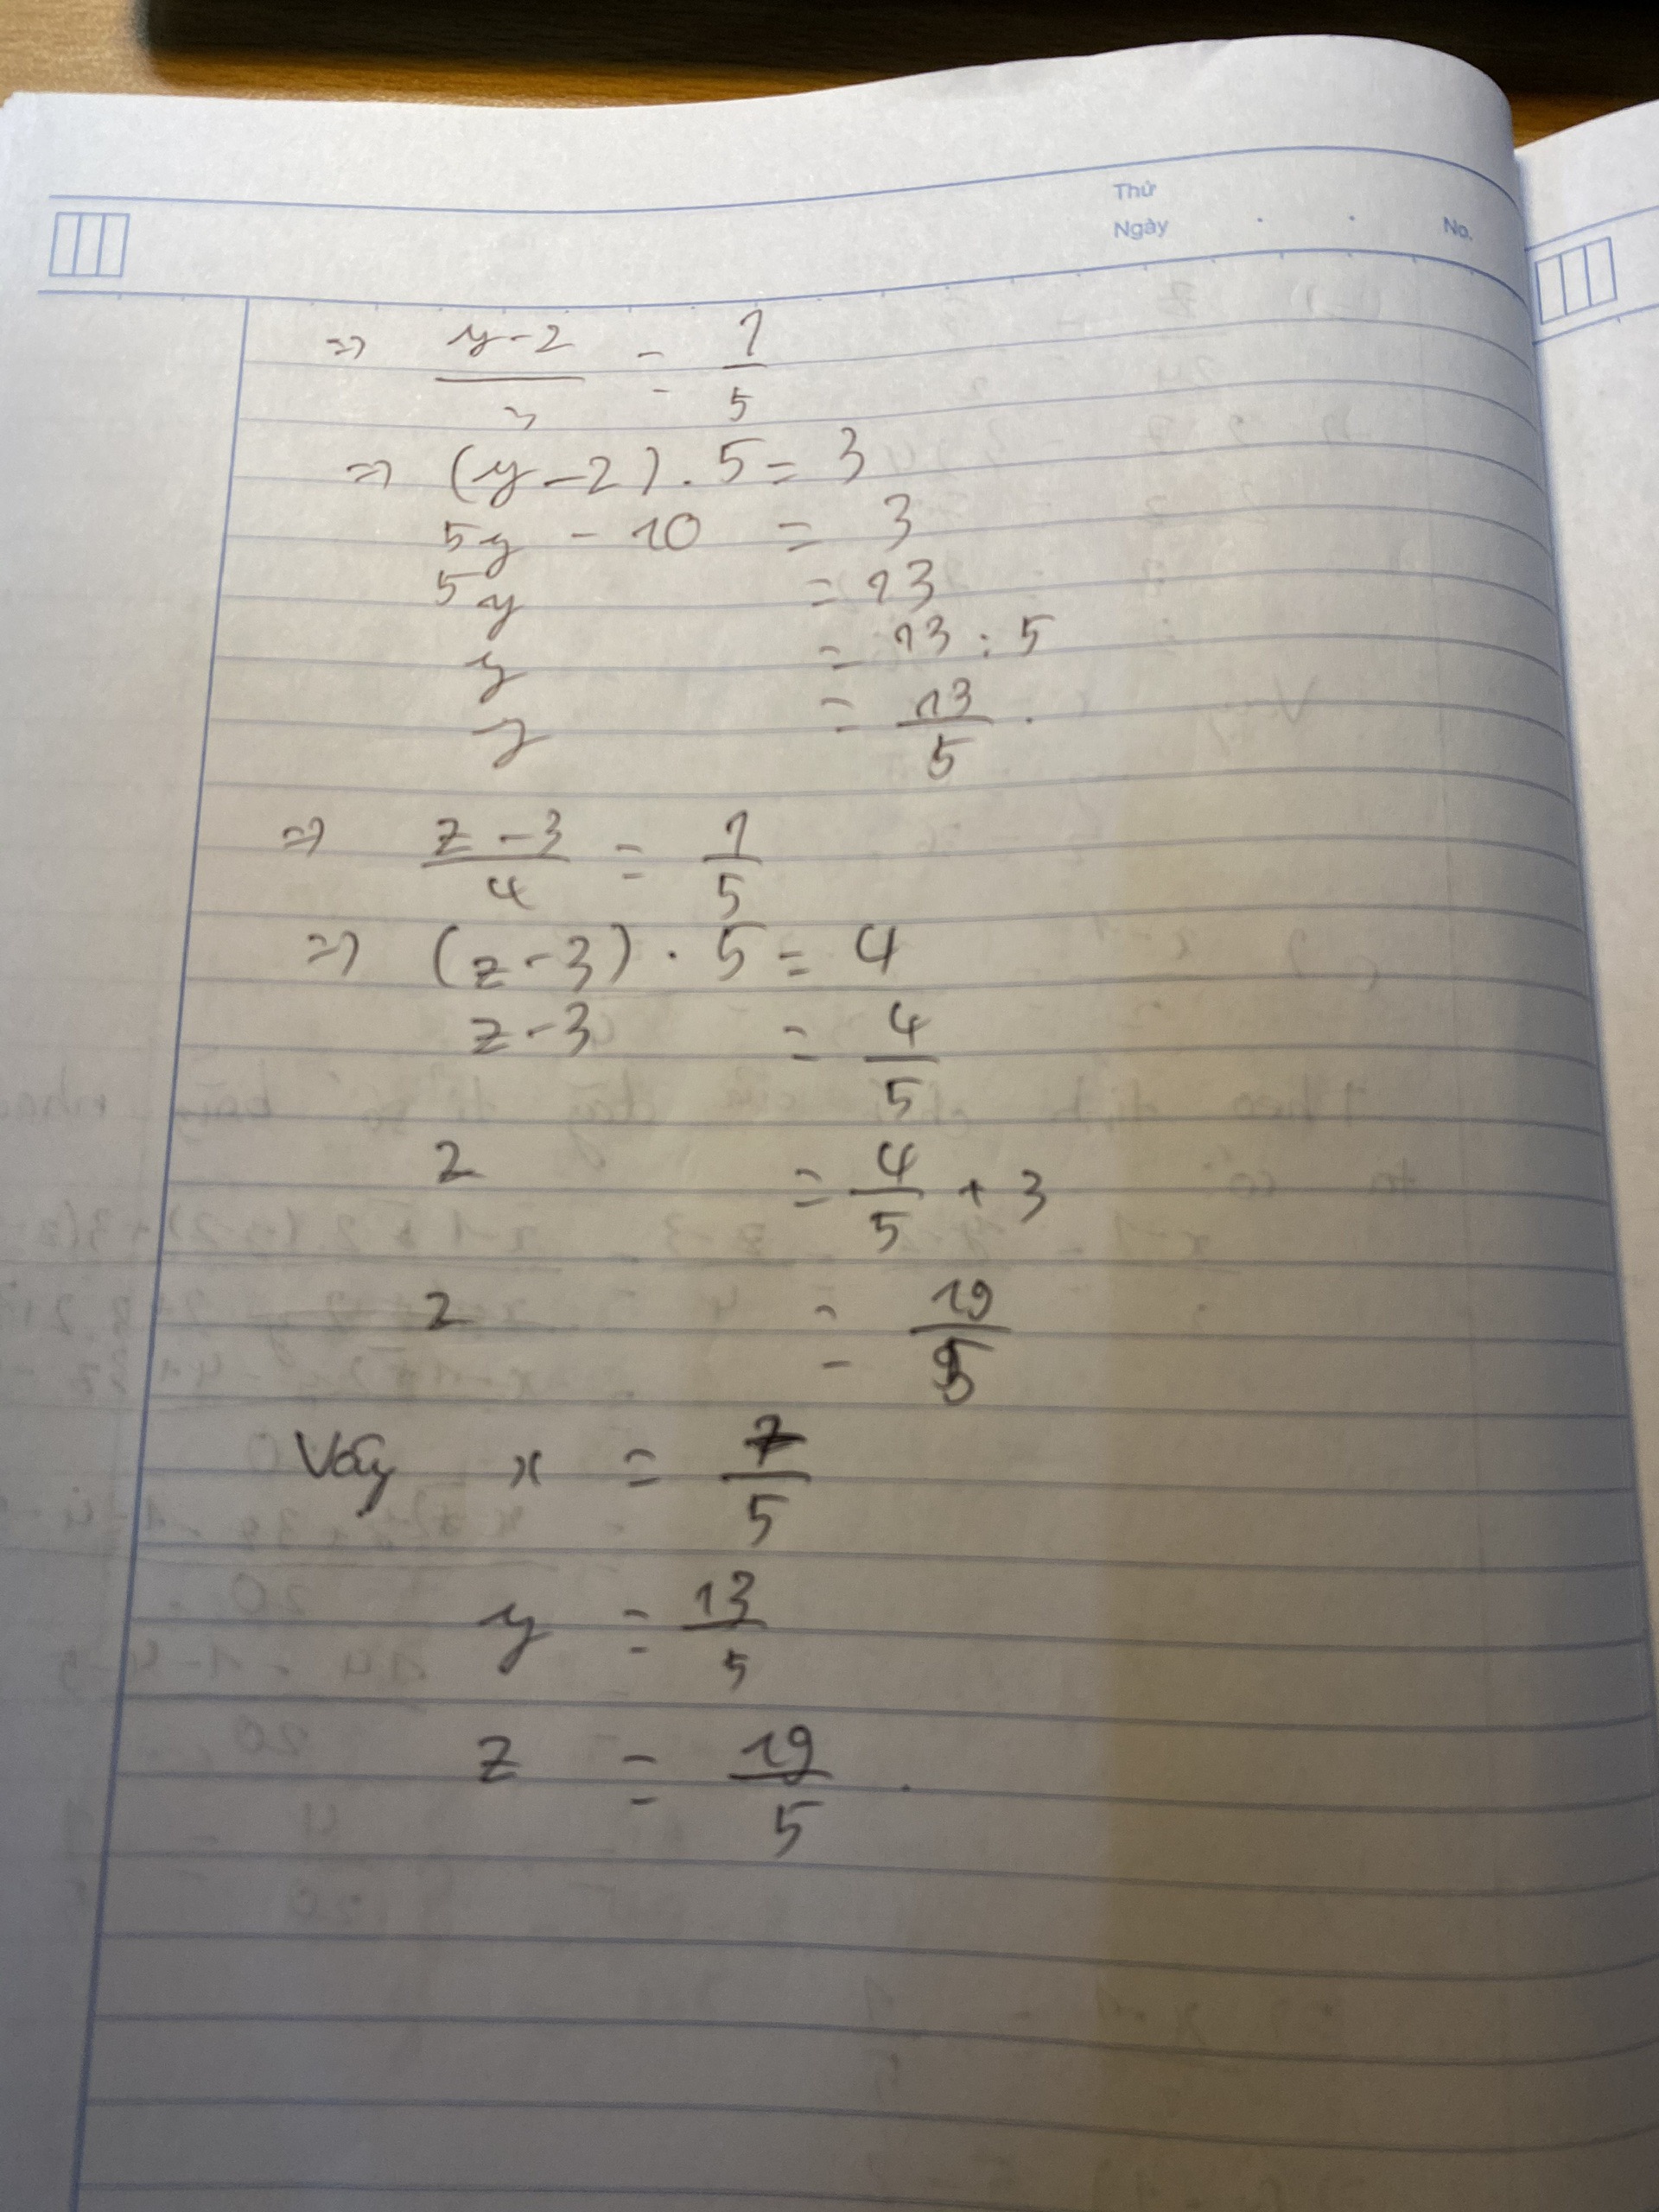 Thứ
Ngày . . No.
=> y-2/3 = 1/5
=> (y-2).5=3
5y - 10 = 3
5y = 13
y = 13:5
y = 13/5.
=> z-3/4 = 1/5
=> (z-3).5=4
z-3 = 4/5
z = 4/5 + 3
z = 19/5
Vậy x = 7/5
y = 13/5
z = 19/5.